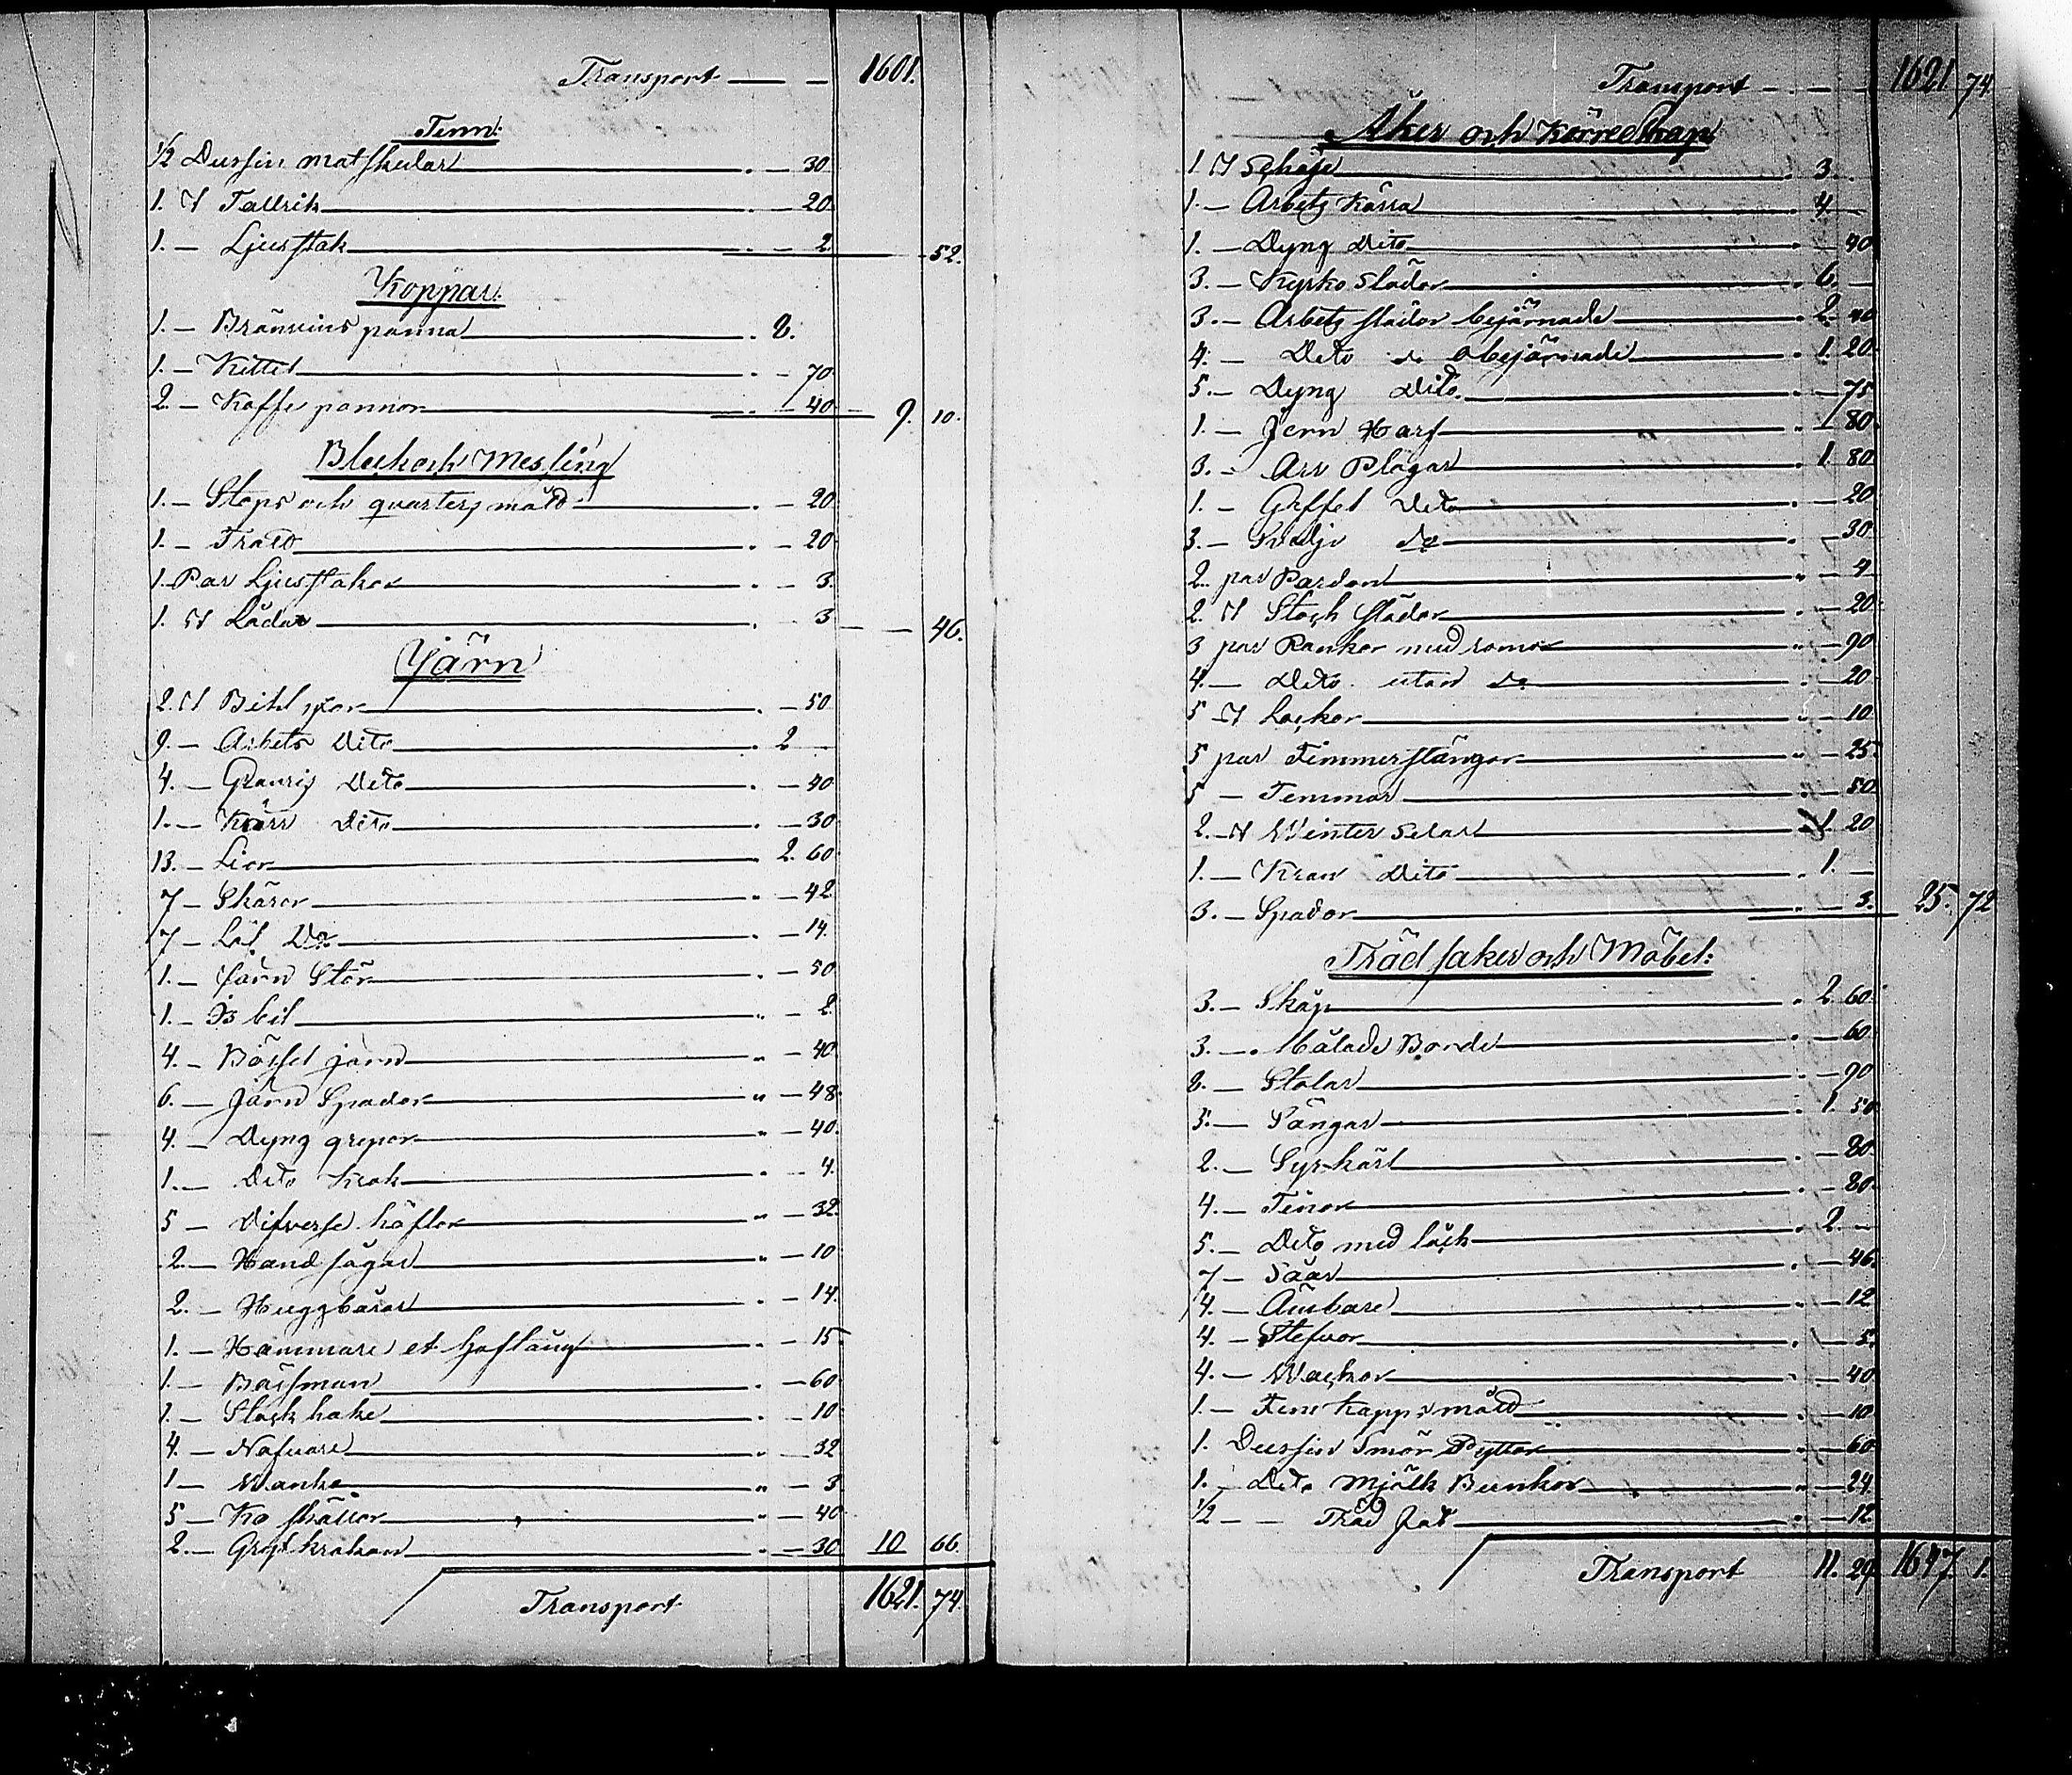 Transport 1601.
Tenn:
1/2 Dussin matskedar 30
1. St Tallrik 20
1. — Ljusstak 2 52.
Koppar:
1. — Bränvins panna 8.
1. — Kittel 70
2. — Kaffe pannor 40 9. 10.
Bleck och Messing
1. — Stops och quarters mått 20
1. — Tratt 20
1. Par Ljusstakar 3.
1. St Lådor 3 46.
Järn
2. St Bihl yxor 50
9. — Arbets Dito 2
4. — Granris Dito 40
1. — Kärr Dito 30
13. — Liar 2. 60
7 — Skäror 42
7 — Löf Do 14.
1. — Järn Stör 50
1. — Is bil 2
4. — Bössel järn 40
6. — Järn Spador 48
4. — Dyng grepar 40.
1. — Dito krok 4.
5 — Difverse höflar 32.
2. — Hand sågar 10
2. — Huggbärar 14.
1. — Hammare et hoftång 15
1. — Bässman 60
1. — Stock hake 10
4. — Nafvare 32
1 — Wanke 3
5 — Ko skällor 40
2. — Gryt krokar 30 10 66.
Transport 1621. 74.
Transport 1621 74.
Åker och Körredskap
1 St Schäs 3.
1. — Arbets Kärra 4
1. — Dyng Dito 40
3. — Kyrko Slädar 6.
3. — Arbets slädor bejärnade 2. 40
4. — Dito do obejärnade 1. 20
5 — Dyng Dito 75
1. — Jern Harf 1 80
3. — Års Plogar 1 80
1. — Gaffel Dito 20
3. — Svedje do 30
2. par Pardon 4
2. St Stock slädor 20
3 par Rankor med romor 90
4. — Dito utan do 20
5 St Lackor 10
5 par Timmerstänger 25
5 — Tömmar 50
2. St Winter Selar 1. 20
1. — Kran Dito 1. —
3. — Spador 3. 25. 72
Träd saker och Möbel:
3. — Skåp 2 60
3. — Målade Bord 60
8. — Stolar 90
5. — Sängar 1. 50
2. — Syrkärl 80
4. — Tinor 80
5. — Dito med låck 2. —
7 — Såar 46.
4. — Ämbare 12
4. — Stefvor 5
4. — Wackor 40
1. — Fem kapps mått 10
1. Dussin Smör Byttor 60
1. — Dito Mjölk Bunkor 24
1/2 — — Träd Fat 12
Transport 11. 29 1647 1.